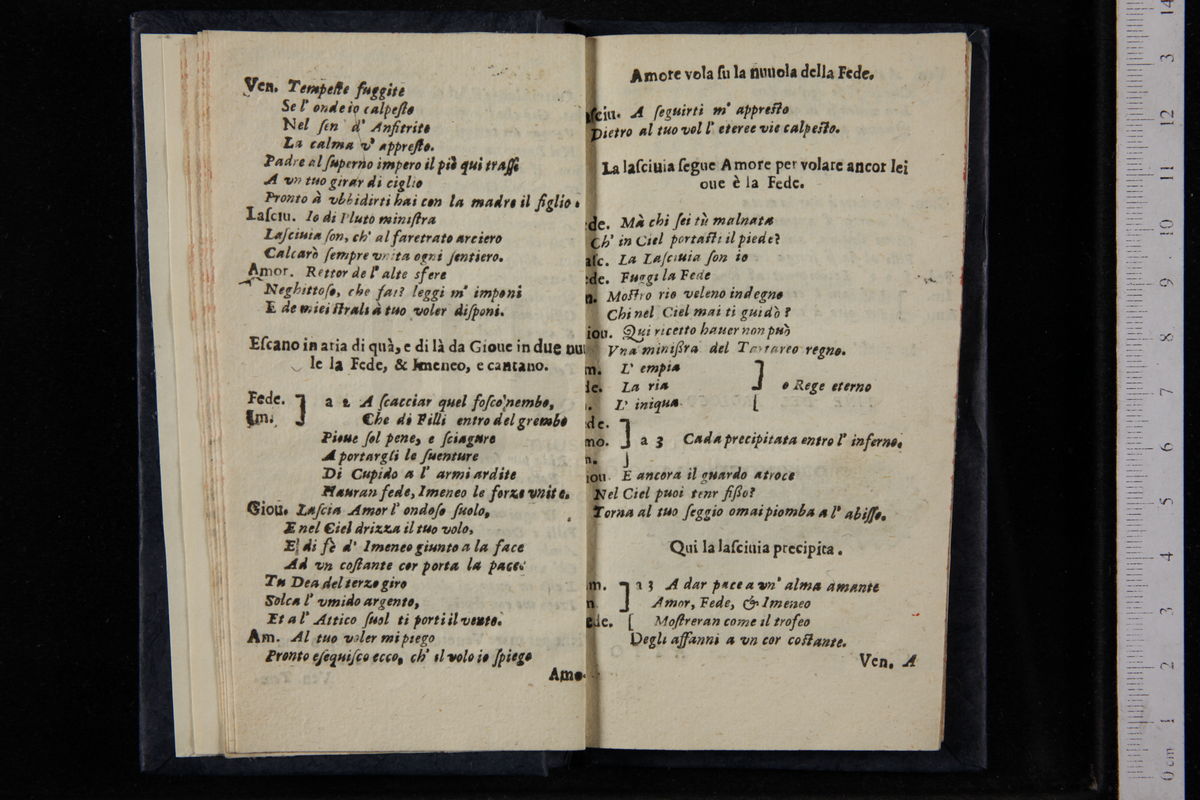 Ven. Tempeſte fuggite
Se l' onde io calpeſto
Nel ſen d' Anfitrite
La calma v' appreſto.
Padre al ſuperno impero il piè qui traſſi
A vn tuo girar di ciglio
Pronto à vbbidirti hai con la madre il figlio.
Laſciu. Io di Pluto miniſtra
Laſciuia ſon, ch' al faretrato arciero
Calcarò ſempre vnita ogni ſentiero.
Amor. Rettor de l' alte sfere
Neghittoſo, che fai? leggi m' imponi
E de miei ſtrali à tuo voler diſponi.
Eſcano in aria di quà, e di là da Gioue in due nu
le la Fede, & Imeneo, e cantano.
Fede. ] a 2 A ſcacciar quel foſco nembo,
Im. ] Che di Filli entro del grembo
Pioue ſol pene, e ſciagure
A portargli le ſuenture
Di Cupido a l' armi ardite
Hauran fede, Imeneo le forze vnite.
Giou. Laſcia Amor l' ondoſo ſuolo,
E nel Ciel drizza il tuo volo,
E di fè d' Imeneo giunto a la face
Ad vn coſtante cor porta la pace.
Tu Dea del terzo giro
Solca l' vmido argento,
Et a l' Attico ſuol ti porti il vento.
Am. Al tuo voler mi piego
Pronto eſequiſco ecco, ch' il volo io ſpiego
Amo-
Amore vola ſu la nuuola della Fede.
aſciu. A ſeguirti m' appreſto
Dietro al tuo vol l' eteree vie calpeſto.
La laſciuia ſegue Amore per volare ancor lei
oue è la Fede.
de. Mà chi ſei tù malnata
Ch' in Ciel portaſti il piede?
aſc. La Laſciuia ſon io
de. Fuggi la Fede
n. Moſtro rio veleno indegno
Chi nel Ciel mai ti guidò?
iou. Qui ricetto hauer non può
Vna miniſtra del Tartareo regno.
m. L' empia ]
de. La ria o Rege eterno
. L' iniqua [
de. ]
mo. ] a 3 Cada precipitata entro l' inferno.
n. ]
iou. E ancora il guardo atroce
Nel Ciel puoi tenr fiſſo?
Torna al tuo ſeggio omai piomba a l' abiſſo.
Qui la laſciuia precipita.
m. ] a 3 A dar pace a vn' alma amante
n. ] Amor, Fede, & Imeneo
ede. [ Moſtreran come il trofeo
Degli affanni a vn cor coſtante.
Ven. A
0 cm 1 2 3 4 5 6 7 8 9 10 11 12 3 14